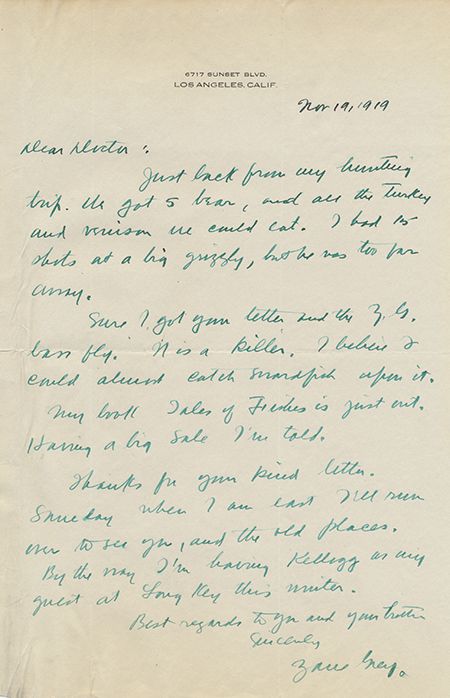 6717 SUNSET BLVD.
LOS ANGELES, CALIF.
Nov 19, 1919
Dear Doctor:
Just back from my hunting
trip. We got 5 bear, and all the turkey
and venison we could eat. I had 15
shots at a big grizzly, but he was too far
away.
Sure I got your letter and the Z. G.
bass fly. It is a killer. I believe I
could almost catch swordfish upon it.
My book Tales of Fishes is just out.
Having a big sale I'm told.
Thanks for your kind letter.
Someday when I am east I'll run
over to see you, and the old places.
By the way I'm having Kellogg as my
guest at Long Key this winter.
Best regards to you and your brother
Sincerely
Zane Grey.